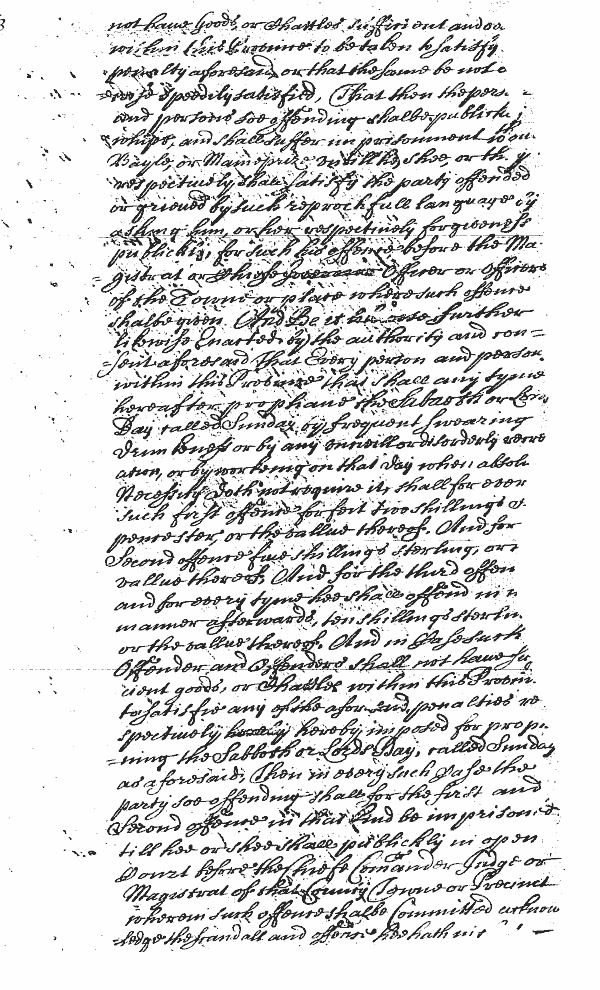 not have goods, or Chattles sufficient and o
within this Province to be taken to satisfy
penalty aforesaid, or that the same be not o
=rwise speedily satisfied, That then the pers
and persons soe offending shalbe publickly
whipt, and shall suffer imprisonment w out
Bayle, or Maineprize untill he, shee, or they
respectively shall satisfy the party offended
or grieved by such reproachfull language by
asking him, or her respectively forgiveness
publickly, for such his offence before the Ma
=gistrat or Cheife Officer or Officers
of the Towne or place where such offence
shalbe given. And Be it further
likewise Enacted by the authority and con=
=sent aforesaid That Every person and persons
within this Province that shall any tyme
hereafter prophane the Sabaoth or Lords
Day called Sunday by frequent swearing
drunkeness or by any uncivill or disorderly recre
ation, or by working on that day when absolute
Necessity doth not require it, shall for every
such first offence forfeit two shillings &
pence ster, or the vallue thereof. And for
Second offence five shillings sterling, or t
vallue thereof. And for the third offen
and for every tyme hee shall offend in
manner afterwards, ten shillings sterlin
or the vallue thereof. And in Case such
Offender and Offenders shall not have su
cient goods, or Chattles within this Provin
to satisfie any of the aforesaid penalties re
spectively hereby imposed for propha
=ning the Sabboth or Lords Day, called Sunday
as aforesaid, Then in every such Case the
party soe offending shall for the first and
Second offence in that kind be imprisoned
till hee or shee shall publickly in open
Court before the Cheife Comander Judge or
Magistrat of that County Towne or Precinct
wherein such offence shalbe Committed acknow
=ledge the scandall and offence hee hath